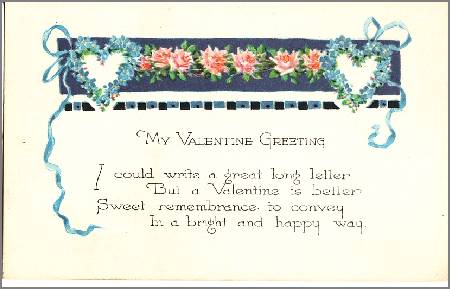 My Valentine Greeting
I could write a great long letter
But a Valentine is better
Sweet remembrance to convey
In a bright and happy way.